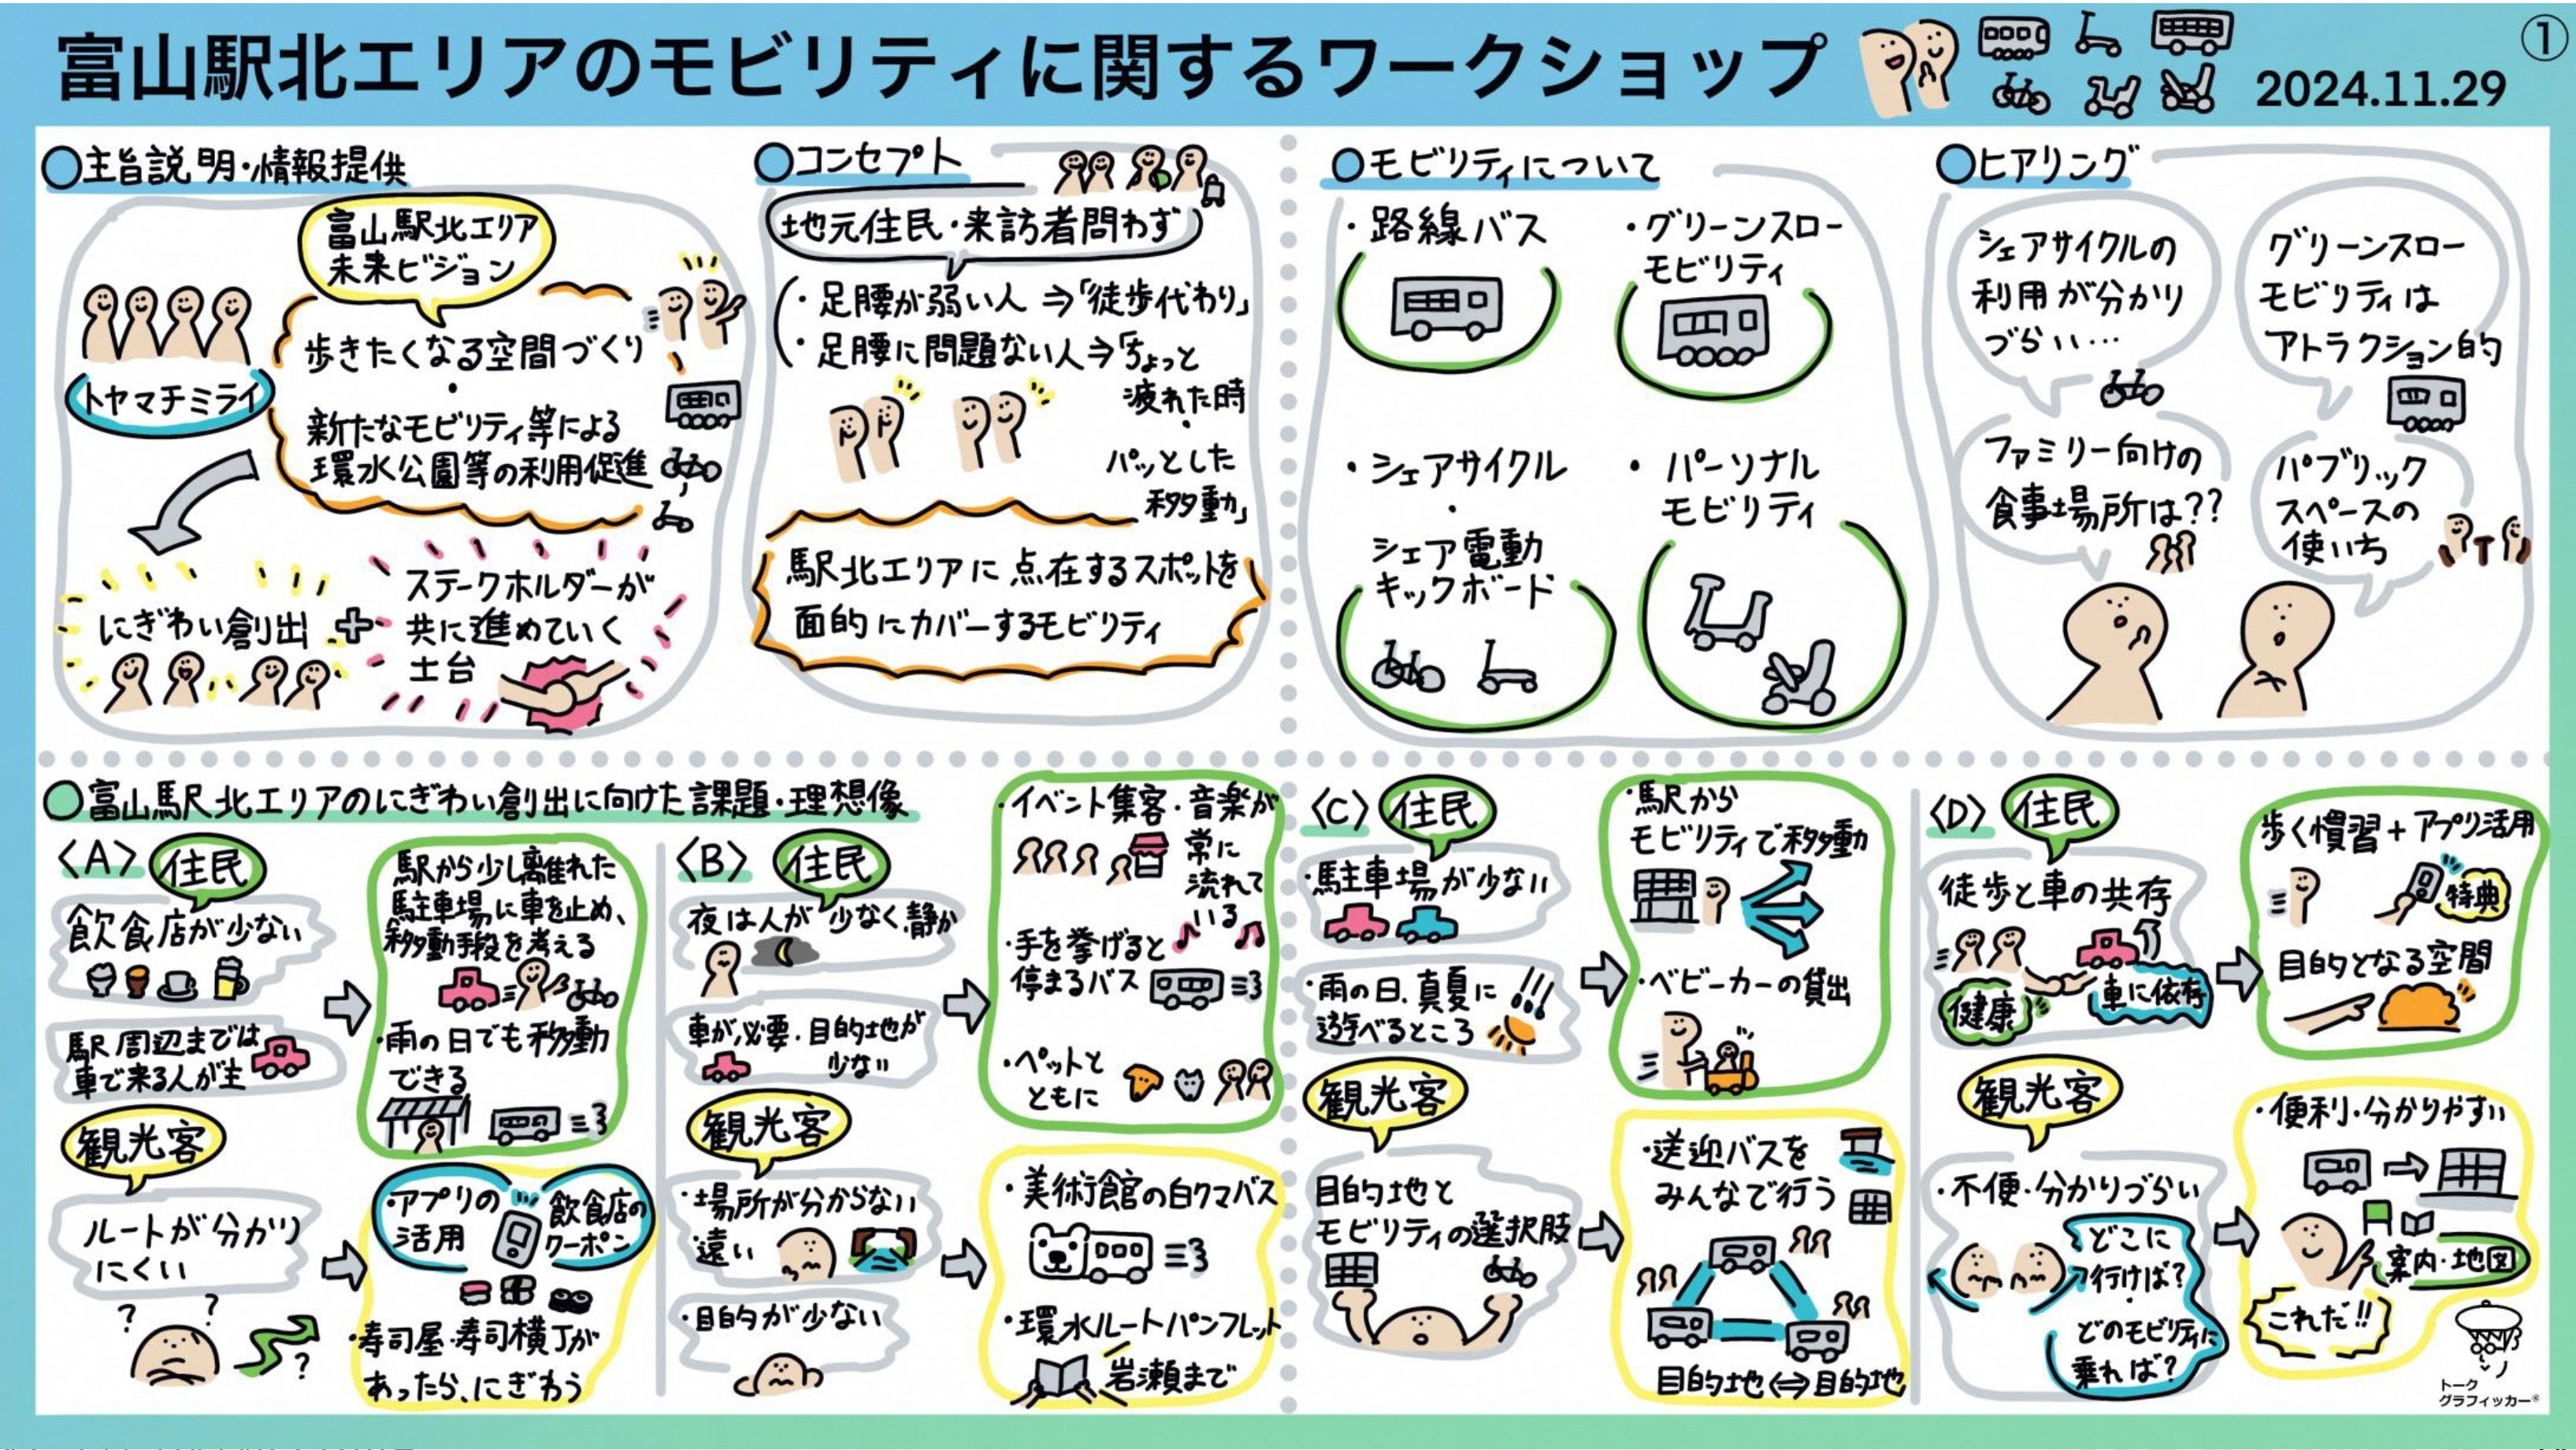 富山駅北エリアのモビリティに関するワークショップ
2024.11.29
①
主旨説明・情報提供
富山駅北エリア
未来ビジョン
トヤマチミライ
歩きたくなる空間づくり
・
新たなモビリティ等による
環水公園等の利用促進
にぎわい創出
+
ステークホルダーが
共に進めていく
土台
コンセプト
地元住民・来訪者問わず
・足腰が弱い人⇒「徒歩代わり」
・足腰に問題ない人⇒「ちょっと
疲れた時
・
パッとした
移動」
駅北エリアに点在するスポットを
面的にカバーするモビリティ
モビリティについて
・路線バス
・グリーンスロー
モビリティ
・シェアサイクル
・
シェア電動
キックボード
・パーソナル
モビリティ
ヒアリング
シェアサイクルの
利用が分かり
づらい…
グリーンスロー
モビリティは
アトラクション的
ファミリー向けの
食事場所は??
パブリック
スペースの
使いち
富山駅北エリアのにぎわい創出に向けた課題・理想像
〈A〉
住民
飲食店が少ない
駅周辺までは
車で来る人が主
駅から少し離れた
駐車場に車を止め、
移動手段を考える
・雨の日でも移動
できる
観光客
ルートが分かり
にくい
? ?
?
・アプリの
活用
飲食店の
クーポン
・寿司屋・寿司横丁が
あったら、にぎわう
〈B〉
住民
夜は人が少なく、静か
車が必要・目的地が
少ない
・イベント集客・音楽が
常に
流れて
いる
・手を挙げると
停まるバス
・ペットと
ともに
観光客
・場所が分からない
・遠い
・目的が少ない
・美術館の白クマバス
・環水ルートパンフレット
岩瀬まで
〈C〉
住民
・駐車場が少ない
・雨の日、真夏に
遊べるところ
・駅から
モビリティで移動
・ベビーカーの貸出
観光客
目的地と
モビリティの選択肢
・送迎バスを
みんなで行う
目的地⇔目的地
〈D〉
住民
徒歩と車の共存
健康
車に依存
歩く慣習+アプリ活用
特典
目的となる空間
観光客
・不便・分かりづらい
どこに
行けば?
・
どのモビリティに
乗れば?
・便利・分かりやすい
案内・地図
これだ!!
トーク
グラフィッカー®